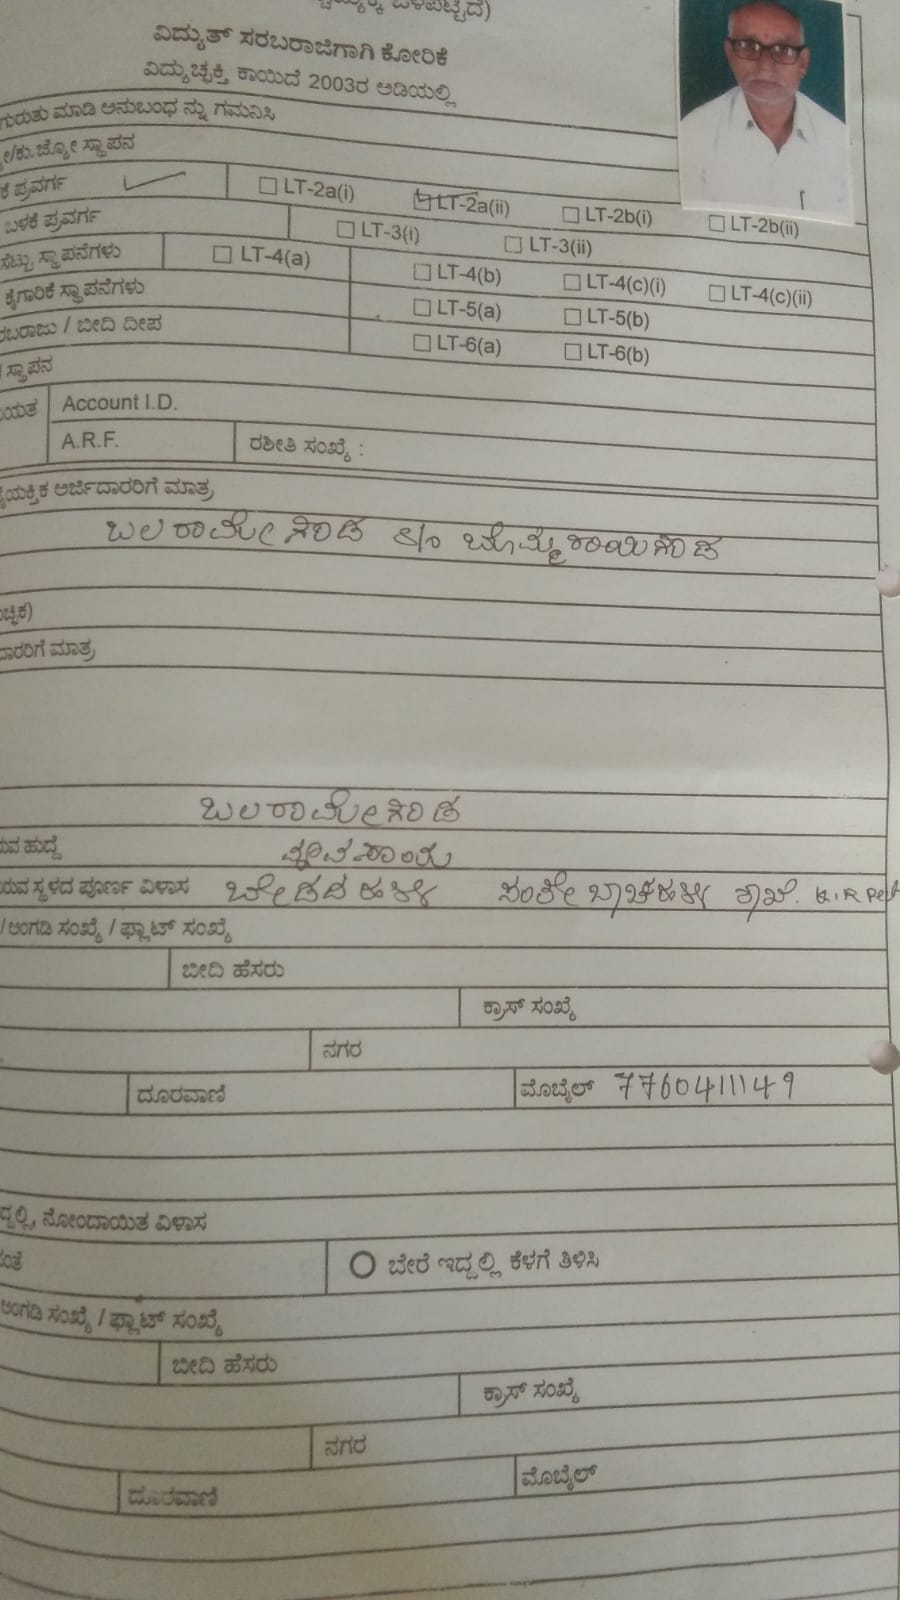 ವಿದ್ಯುತ್ ಸರಬರಾಜಿಗಾಗಿ ಕೋರಿಕೆ
ವಿದ್ಯುಚ್ಛಕ್ತಿ ಕಾಯಿದೆ 2003ರ ಅಡಿಯಲ್ಲಿ
ಗುರುತು ಮಾಡಿ ಅನುಬಂಧ ನ್ನು ಗಮನಿಸಿ
ಸ್ಥಾಪನ
ಪ್ರವರ್ಗ LT-2a(i) LT-2a(ii) LT-2b(i) LT-2b(ii)
ಬಳಕೆ ಪ್ರವರ್ಗ LT-3(i) LT-3(ii)
ಸ್ಥಾಪನೆಗಳು LT-4(a) LT-4(b) LT-4(c)(i) LT-4(c)(ii)
ಕೈಗಾರಿಕೆ ಸ್ಥಾಪನೆಗಳು LT-5(a) LT-5(b)
/ ಬೀದಿ ದೀಪ LT-6(a) LT-6(b)
ಸ್ಥಾಪನ
Account I.D.
A.R.F. ರಶೀತಿ ಸಂಖ್ಯೆ :
ಅರ್ಜಿದಾರರಿಗೆ ಮಾತ್ರ
ಬಲರಾಮೇಗೌಡ S/o ಬೊಮ್ಮೇರಾಯಿಗೌಡ
ಮಾತ್ರ
ಬಲರಾಮೇಗೌಡ
ಹುದ್ದೆ
ಸ್ಥಳದ ಪೂರ್ಣ ವಿಳಾಸ ಬೇಡದಹಳ್ಳಿ ಸಂತೇಬಾಚಹಳ್ಳಿ K.R Pet
/ ಅಂಗಡಿ ಸಂಖ್ಯೆ / ಫ್ಲಾಟ್ ಸಂಖ್ಯೆ
ಬೀದಿ ಹೆಸರು
ಕ್ರಾಸ್ ಸಂಖ್ಯೆ
ನಗರ
ದೂರವಾಣಿ ಮೊಬೈಲ್ 7760411149
ನೋಂದಾಯಿತ ವಿಳಾಸ
ಬೇರೆ ಇದ್ದಲ್ಲಿ ಕೆಳಗೆ ತಿಳಿಸಿ
ಅಂಗಡಿ ಸಂಖ್ಯೆ / ಫ್ಲಾಟ್ ಸಂಖ್ಯೆ
ಬೀದಿ ಹೆಸರು
ಕ್ರಾಸ್ ಸಂಖ್ಯೆ
ನಗರ
ದೂರವಾಣಿ ಮೊಬೈಲ್